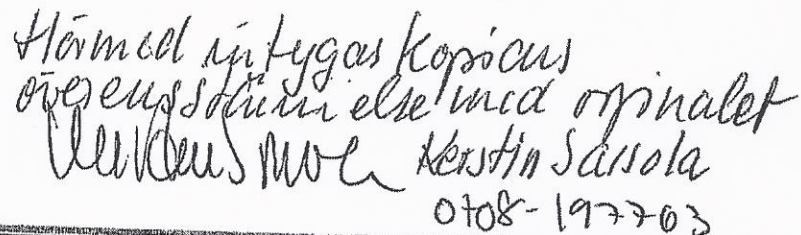 Härmed intygas kopians
överensstämmelse med originalet
Kerstin Sarsola
0708-197703